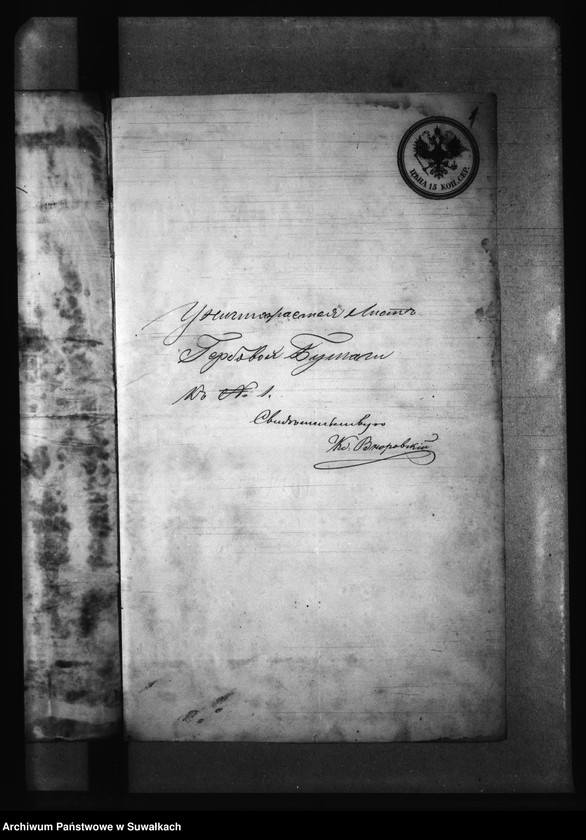 1
ЦѢНА 15 КОП. СЕР.
Уничтожается Листъ
Гербовой Бумаги
къ № 1.
Свидѣтельствую
Кс.
Archiwum Państwowe w Suwałkach